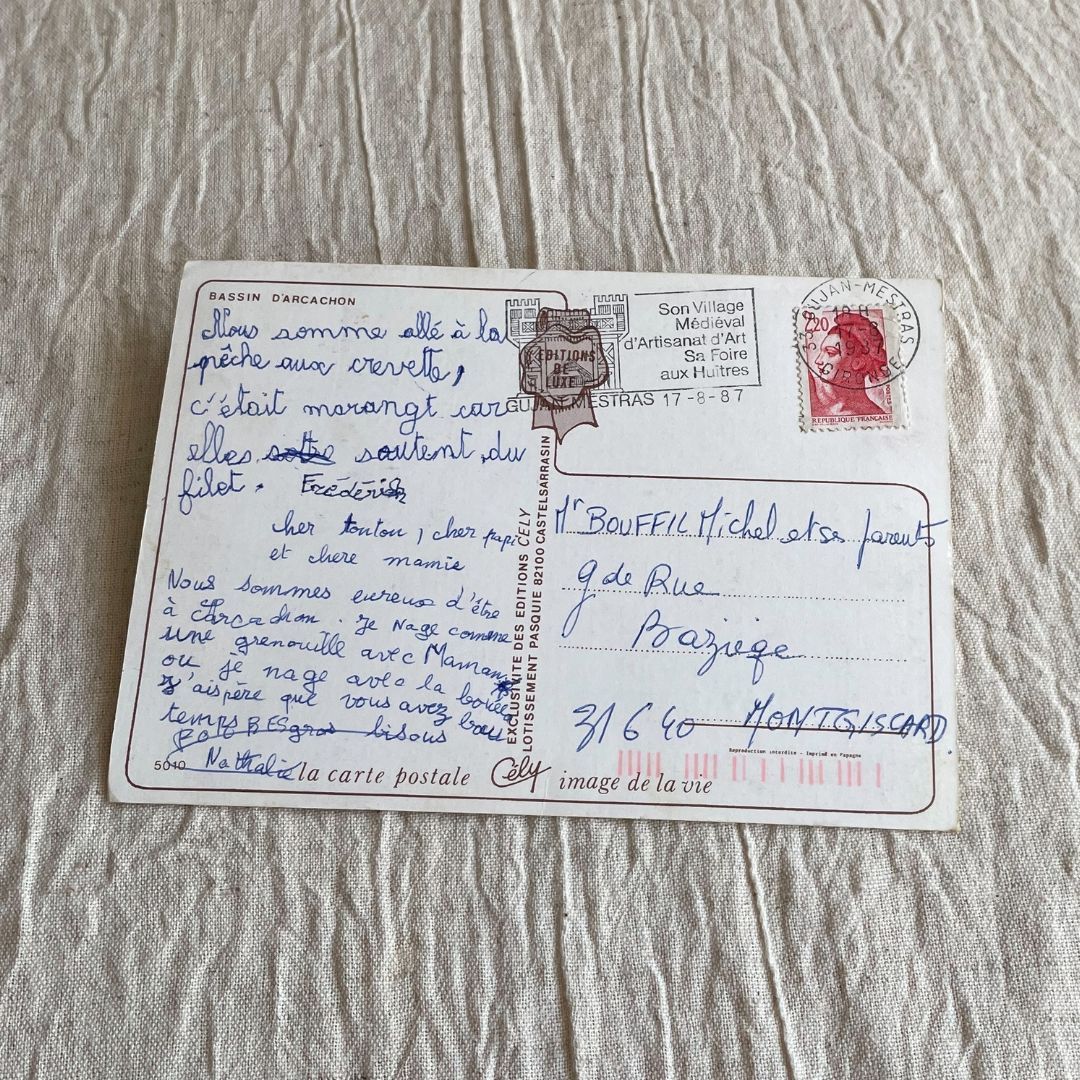 BASSIN D'ARCACHON
Nous somme allé à la
pêche aux crevette,
c'était marangt car
elles sautent du
filet. Frédérich
cher tonton, cher papi
et chere mamie
Nous sommes eureux d'être
à Larcachon. Je Nage comme
une grenouille avec Maman
ou je nage avec la bouée
J'aispère que vous avez bau
temps gros bisous
Nathalie
5040
la carte postale Cély image de la vie
EXCLUSIVITE DES EDITIONS CELY
LOTISSEMENT PASQUIE 82100 CASTELSARRASIN
EDITIONS
DE
LUXE
Son Village
Médiéval
d'Artisanat d'Art
Sa Foire
aux Huîtres
GUJAN MESTRAS 17-8-87
33 GUJAN-MESTRAS
18 H
17-8
1987
GIRONDE
2,20
REPUBLIQUE FRANÇAISE
Mr BOUFFIL Michel et ses parents
g de Rue
Baziège
31640 MONTGISCARD
Reproduction interdite - Imprimé en Espagne